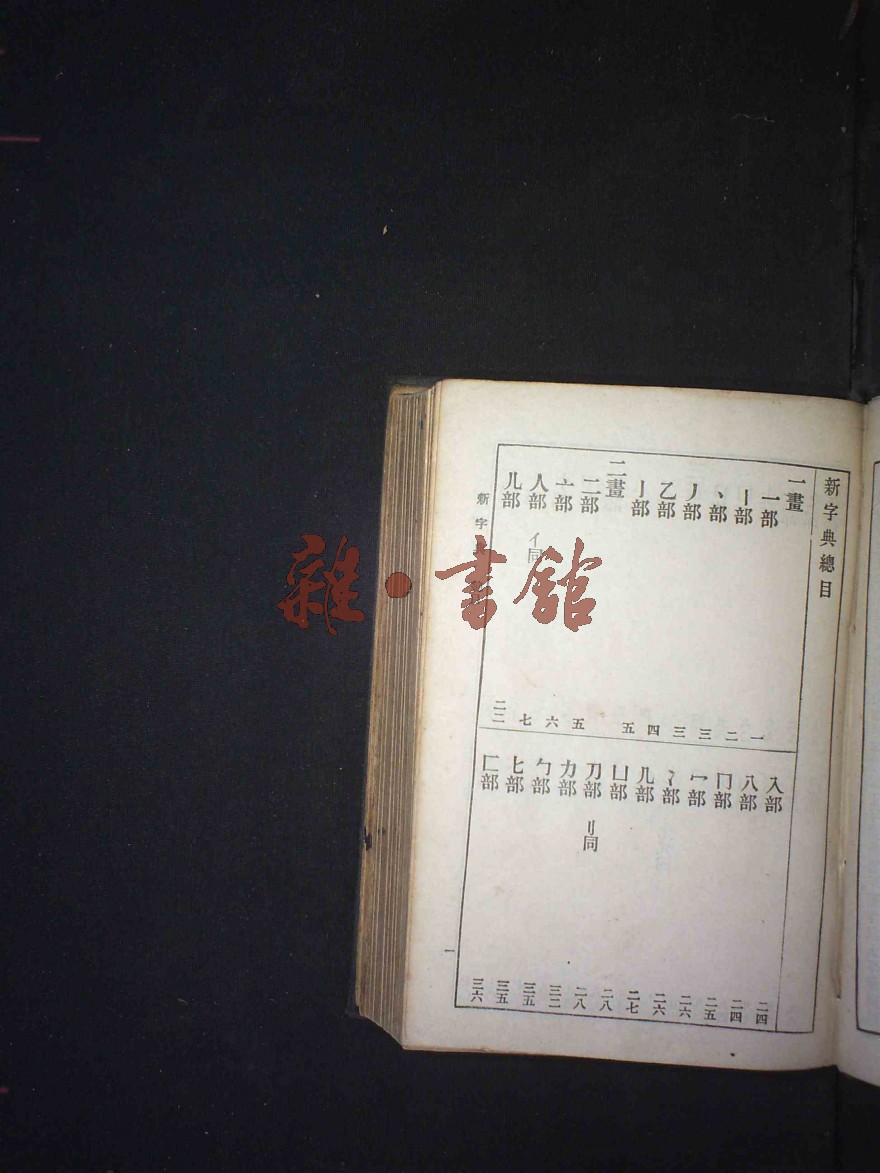 新字典總目
一畫
一部 一
丨部 二
丶部 三
丿部 三
乙部 四
亅部 五
二畫
二部 五
亠部 六
人部 亻同 七
儿部 二二
入部 二四
八部 二四
冂部 二五
冖部 二六
冫部 二六
几部 二七
凵部 二八
刀部 刂同 二八
力部 三二
勹部 三五
匕部 三五
匚部 三六
新字
一
雜·書館